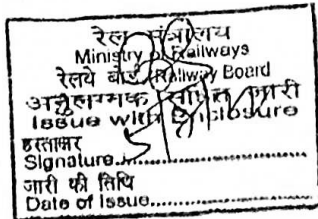 रेल मंत्रालय
Ministry Railways
रेलवे बोर्ड Railway Board
अनुलग्नक सहित जारी
Issue with Enclosure
हस्ताक्षर
Signature..............................
जारी की तिथि
Date of Issue..........................